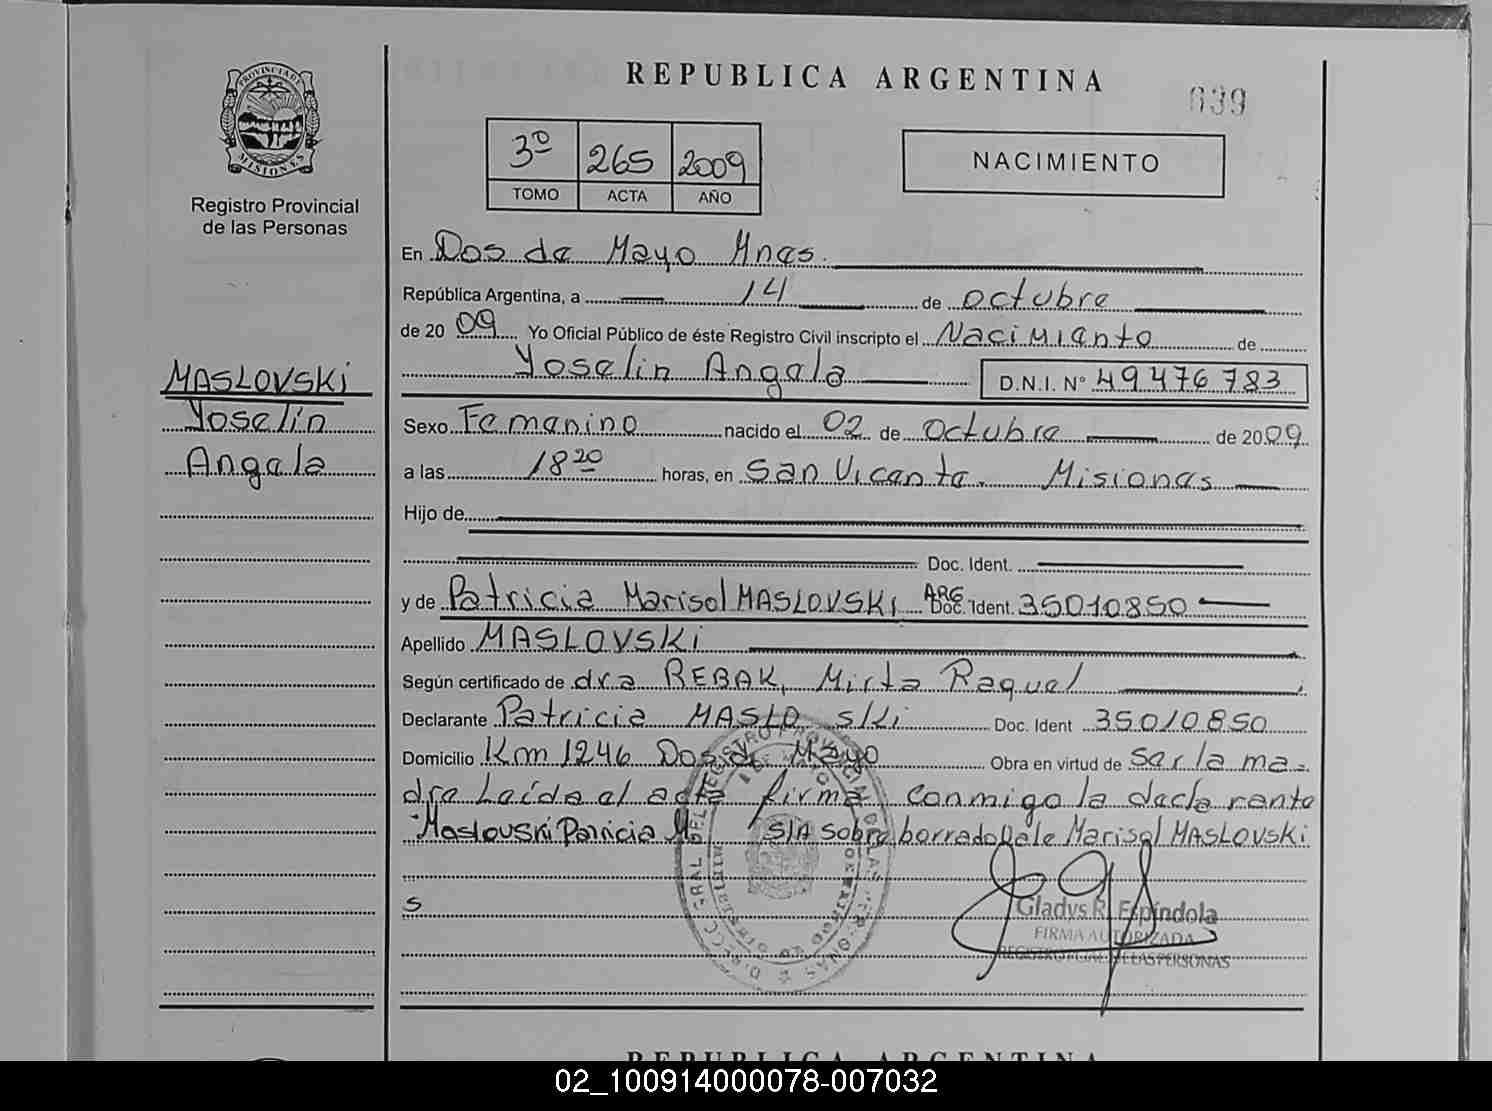 REPUBLICA ARGENTINA
639
PROVINCIA DE MISIONES
Registro Provincial
de las Personas
3º 265 2009
TOMO ACTA AÑO
NACIMIENTO
En Dos de Mayo Mnes.
República Argentina, a 14 de octubre
de 2009 Yo Oficial Público de éste Registro Civil inscripto el Nacimiento de
Yoselin Angela D.N.I. N° 49476783
MASLOVSKi
Yoselin
Angela
Sexo Femenino nacido el 02 de octubre de 2009
a las 18 20 horas, en San Vicente. Misiones
Hijo de
Doc. Ident.
y de Patricia Marisol MASLOVSKi ARG Doc. Ident. 35010850
Apellido MASLOVSKi
Según certificado de dra REBAK, Mirta Raquel
Declarante Patricia MASLO s/ki Doc. Ident 35010850
Domicilio Km 1246 Dos de Mayo Obra en virtud de ser la ma-
dre Leída el acta firma conmigo la declarante
Maslovski Patricia M S/A sobre borrado Vale Marisol MASLOVSKi
s
Gladys R. Espindola
FIRMA AUTORIZADA
REGISTRO PCIAL. DE LAS PERSONAS
REPUBLICA ARGENTINA
02_100914000078-007032